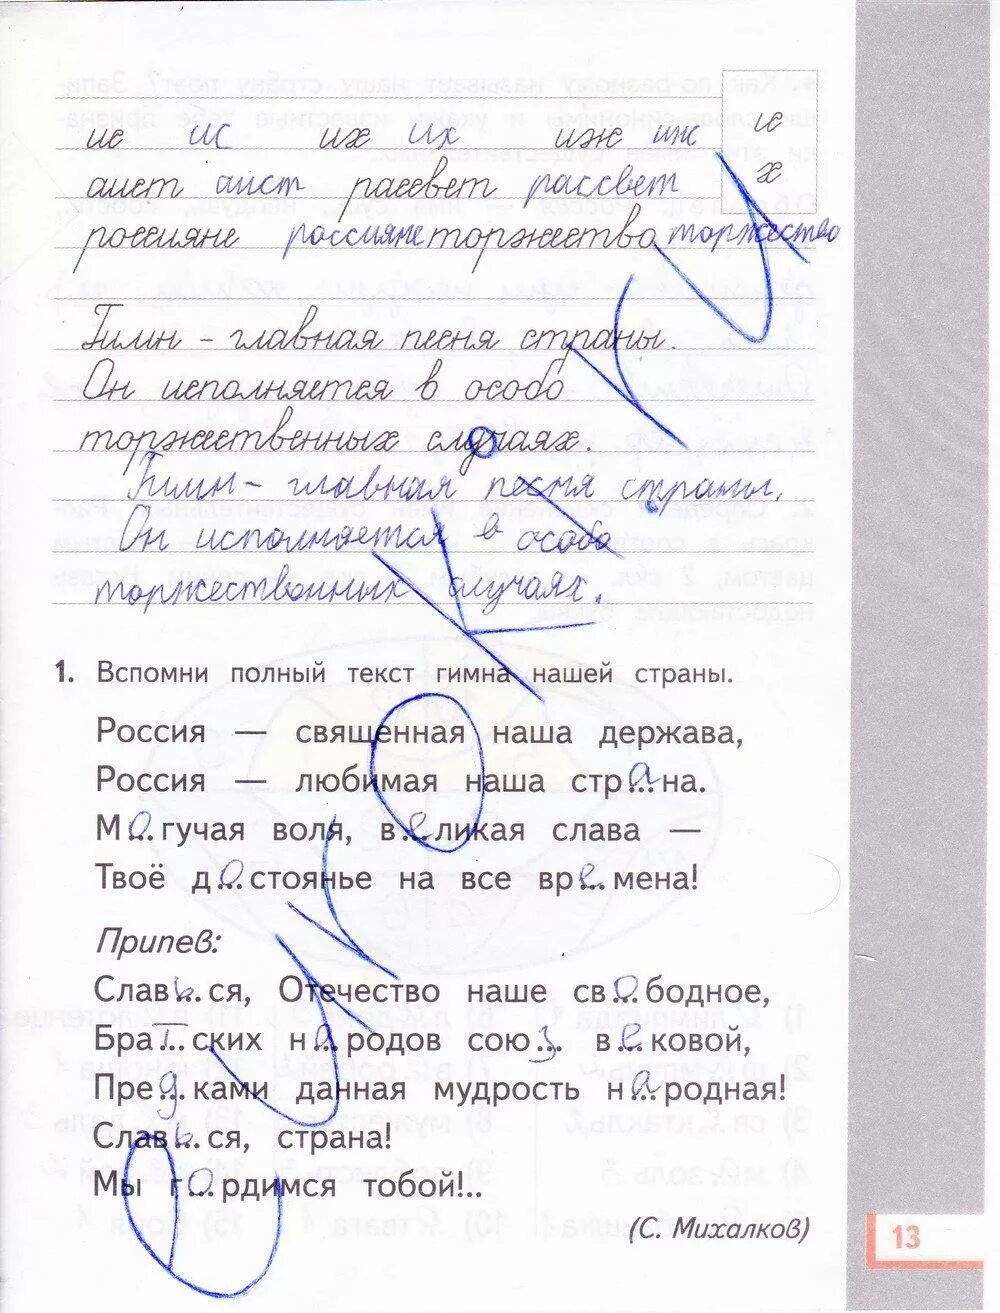 ис ис их их иж иж с
аист аист рассвет рассвет х
россияне россияне торжество торжество
Гимн – главная песня страны.
Он исполняется в особо
торжественных случаях.
Гимн – главная песня страны.
Он исполняется в особо
торжественных случаях.
1. Вспомни полный текст гимна нашей страны.
Россия — священная наша держава,
Россия — любимая наша страна.
Могучая воля, великая слава —
Твоё достоянье на все времена!
Припев:
Славься, Отечество наше свободное,
Братских народов союз вековой,
Предками данная мудрость народная!
Славься, страна!
Мы гордимся тобой!..
(С. Михалков)
13